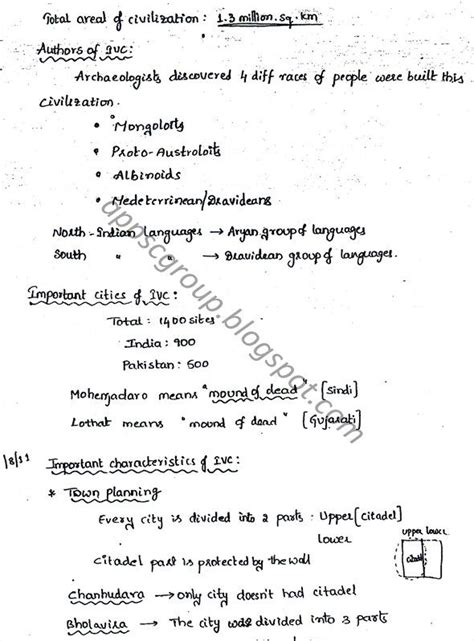 Total areal of civilization : 1.3 million.sq.km
Authors of IVC:
Archaeologists discovered 4 diff races of people were built this
civilization.
• Mongoloits
• Proto-Austroloits
• Albinoids
• Medeterrinean/Dravideans
North-Indian languages → Aryan group of languages
South " " → Dravidean group of languages.
Important cities of IVC:
Total : 1400 sites
India : 900
Pakistan : 500
Mohenjadaro means "mound of dead" [Sindi]
Lothal means "mound of dead" [Gujarati]
Important characteristics of IVC:
* Town planning
Every city is divided into 2 parts : Upper [citadel]
lower
upper lower
citadel part is protected by the wall
Chanhudara → only city doesn't had citadel
Dholavira → The city was divided into 3 parts
appscgroup.blogspot.com